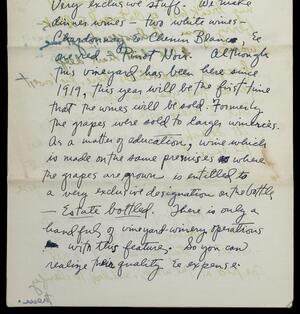 Very exclusive stuff. We make
dinner wines – two white wines –
Chardonnay & Chenin Blanc, &
a red – Pinot Noir. Although
this vineyard has been here since
1919, this year will be the first time
that the wines will be sold. Formerly
the grapes were sold to larger wineries.
As a matter of education, wine which
is made on the same premises where
the grapes are grown is entitled to
a very exclusive designation on the bottle
– Estate bottled. There is only a
handful of vineyard winery operations
with this feature. So you can
realize their quality & expense.